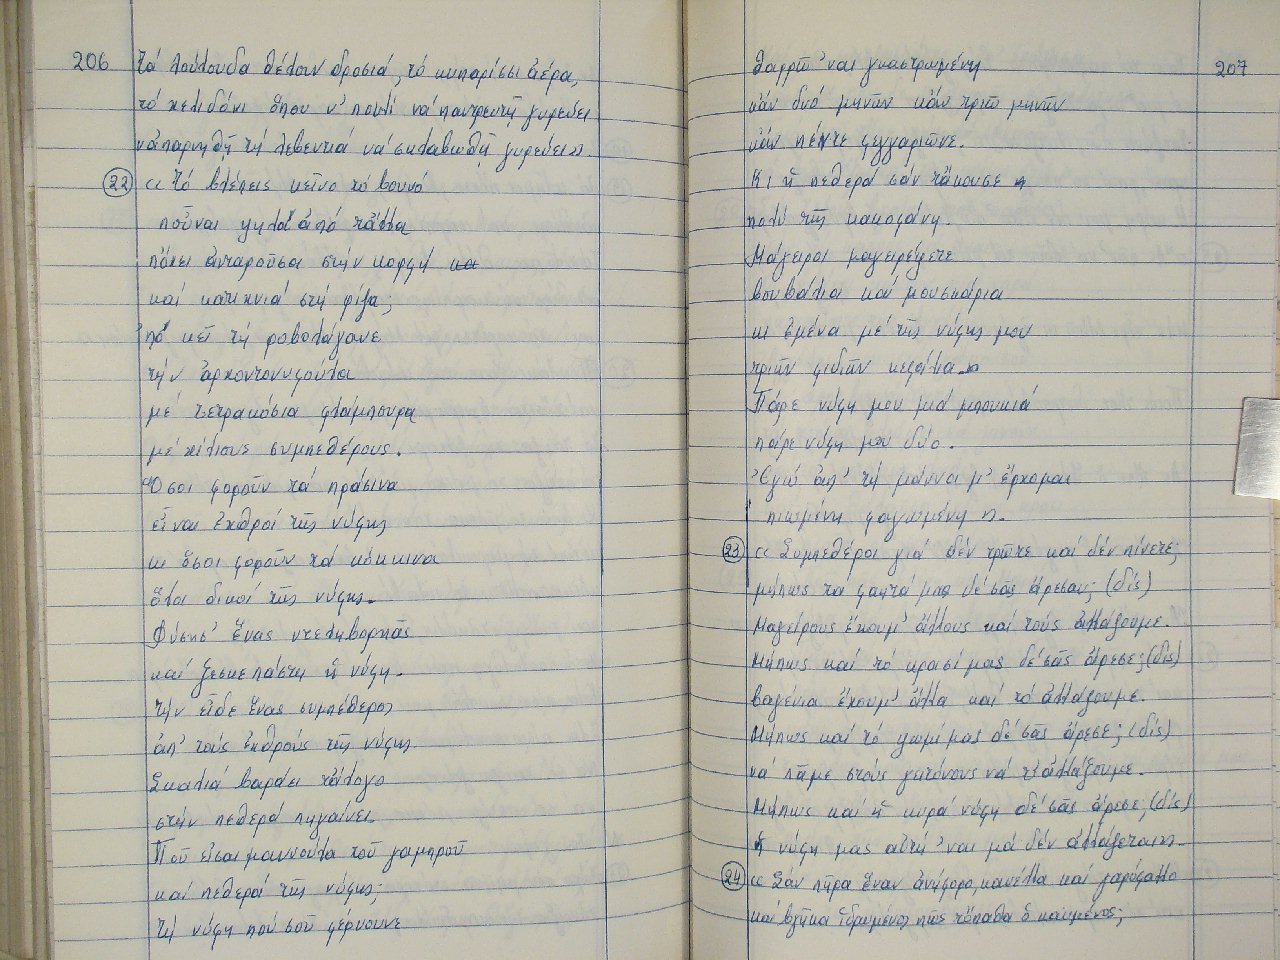 206
τά λούλουδα θέλουν δροσιά, τό κυπαρίσσι ἀέρα,
τό χελιδόνι ὅπου ν' πουλί νά παντρευτῇ γυρεύει
ν' ἀπαρνηθῇ τή λεβεντιά νά σκλαβωθῇ γυρεύει»
22 «Τό βλέπεις κεῖνο τό βουνό
ποὖναι ψηλά ἀπό τἄλλα
πὄχει ἀνταροῦσα στήν κορφή
καί κατεχνιά στή ρίζα;
'πό κεῖ τή ροβολάγανε
τήν ἀρχοντονυφούλα
μέ τετρακόσια φλάμπουρα
μέ χίλιους συμπεθέρους.
Ὅσοι φοροῦν τά πράσινα
εἶναι ἐχθροί τῆς νύφης
κι ὅσοι φοροῦν τά κόκκινα
ὅλοι δικοί τῆς νύφης.
Φύσησ' ἕνας ντεληβορηᾶς
καί ξεσκεπάστη ἡ νύφη.
Τήν εἶδε ἕνας συμπέθερος
ἀπ' τούς ἐχθρούς τῆς νύφης.
Σκαλιά βαράει τἄλογο
στήν πεθερά πηγαίνει.
Ποῦ εἶσαι μαννούλα τοῦ γαμπροῦ
καί πεθερά τῆς νύφης;
Τή νύφη πού σοῦ φέρνουνε
207
θαρρῶ 'ναι γκαστρωμένη
κἄν δυό μηνῶν κἄν τριῶ μηνῶν
κἄν πέντε φεγγαριῶνε.
Κι ἡ πεθερά σάν τἄκουσε
πολύ τῆς κακοφάνη.
Μάγειροι μαγειρέψετε
βουβάλια καί μουσκάρια
κι ἐμένα μέ τῆς νύφης μου
τριῶν φιδιῶν κεφάλια.»
Πάρε νύφη μου μιά μπουκιά
πάρε νύφη μου δύο.
Ἐγώ ἀπ' τή μάννα μ' ἔρχομαι
πιωμένη φαγωμένη».
23 «Συμπεθέροι γιά δέν τρῶτε καί δέν πίνετε;
μήπως τά φαητά μας δέ σᾶς ἄρεσαν; (δίς)
Μαγείρους ἔχουμ' ἄλλους καί τούς ἀλλάζουμε.
Μήπως καί τό κρασί μας δέ σᾶς ἄρεσε; (δίς)
βαγένια ἔχουμ' ἄλλα καί τό ἀλλάζουμε.
Μήπως καί τό ψωμί μας δέ σᾶς ἄρεσε; (δίς)
νά πᾶμε στούς γειτόνους νά τ' ἀλλάξουμε.
Μήπως καί ἡ κυρά νύφη δέ σᾶς ἄρεσε; (δίς)
ἡ νύφη μας αὐτή 'ναι μά δέν ἀλλάζεται».
24 «Σάν πῆρα ἕναν ἀνήφορο, κανέλλα καί γαρύφαλλο
καί βγῆκα ἱδρωμένος πῶς τὄπαθα ὁ καημένος;